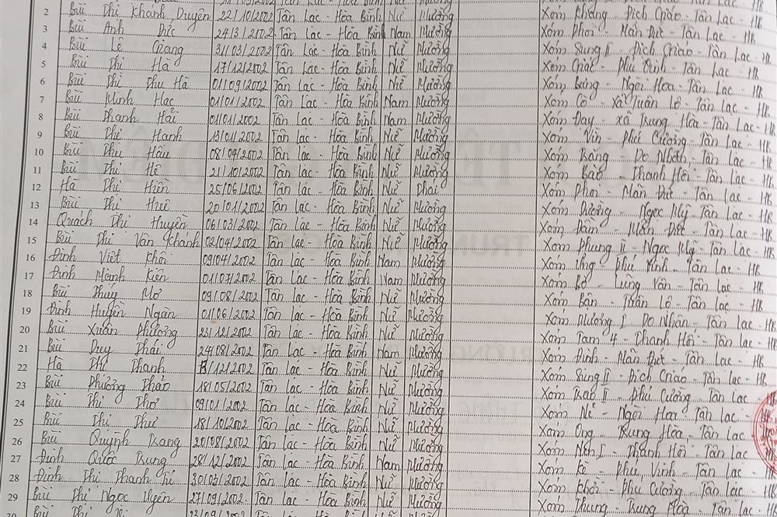 2 Bùi Thị Khánh Duyên 22/10/2002 Tân Lạc - Hòa Bình Nữ Mường Xóm Kháng - Địch Giáo - Tân Lạc - HB
3 Bùi Anh Đức 24/3/2002 Tân Lạc - Hòa Bình Nam Mường Xóm Phoi - Mãn Đức - Tân Lạc - HB
4 Bùi Lê Giang 31/03/2002 Tân Lạc - Hòa Bình Nữ Mường Xóm Sung II - Địch Giáo - Tân Lạc - HB
5 Bùi Thị Hà 17/12/2002 Tân Lạc - Hòa Bình Nữ Mường Xóm Giác - Phú Vinh - Tân Lạc - HB
6 Bùi Thị Thu Hà 01/09/2002 Tân Lạc - Hòa Bình Nữ Mường Xóm - Ngòi Hoa - Tân Lạc - HB
7 Bùi Minh Hạc 01/01/2002 Tân Lạc - Hòa Bình Nam Mường Xóm Cò - xã Tuân Lộ - Tân Lạc - HB
8 Bùi Thanh Hải 01/01/2002 Tân Lạc - Hòa Bình Nam Mường Xóm Đay - xã Trung Hòa - Tân Lạc - HB
9 Bùi Thị Hạnh 13/01/2002 Tân Lạc - Hòa Bình Nữ Mường Xóm Vin - Phú Cường - Tân Lạc - HB
10 Bùi Thu Hậu 08/09/2002 Tân Lạc - Hòa Bình Nữ Mường Xóm Bằng - Do Nhân - Tân Lạc - HB
11 Bùi Thị 21/10/2002 Tân Lạc - Hòa Bình Nữ Mường Xóm - Thanh Hối - Tân Lạc - HB
12 Hà Thị Hiền 25/06/2002 Tân Lạc - Hòa Bình Nữ Thái Xóm Phoi - Mãn Đức - Tân Lạc - HB
13 Bùi Thị Huê 20/01/2002 Tân Lạc - Hòa Bình Nữ Mường Xóm Dường - Ngọc Mỹ - Tân Lạc - HB
14 Quách Thị Huyền 06/03/2002 Tân Lạc - Hòa Bình Nữ Mường Xóm - Mãn Đức - Tân Lạc - HB
15 Bùi Thị Vân Khánh 02/04/2002 Tân Lạc - Hòa Bình Nữ Mường Xóm Phung II - Ngọc Mỹ - Tân Lạc - HB
16 Đinh Viết 09/04/2002 Tân Lạc - Hòa Bình Nam Mường Xóm - Phú Vinh - Tân Lạc - HB
17 Đinh Mạnh Kiên 01/07/2002 Tân Lạc - Hòa Bình Nam Mường Xóm Bo - Lũng Vân - Tân Lạc - HB
18 Bùi Thúy Mơ 09/08/2002 Tân Lạc - Hòa Bình Nữ Mường Xóm Bản - Tuân Lộ - Tân Lạc - HB
19 Đinh Huyền Ngân 01/06/2002 Tân Lạc - Hòa Bình Nữ Mường Xóm Mương I - Do Nhân - Tân Lạc - HB
20 Bùi Xuân Phương 23/12/2002 Tân Lạc - Hòa Bình Nữ Mường Xóm Tam 4 - Thanh Hối - Tân Lạc - HB
21 Bùi Duy Thái 24/08/2002 Tân Lạc - Hòa Bình Nam Mường Xóm Định - Mãn Đức - Tân Lạc - HB
22 Hà Thị Thanh /12/2002 Tân Lạc - Hòa Bình Nữ Mường Xóm Sung II - Địch Giáo - Tân Lạc - HB
23 Bùi Phương Thảo 18/05/2002 Tân Lạc - Hòa Bình Nữ Mường Xóm Bao II - Phú Cường - Tân Lạc - HB
24 Bùi Thị Thơ 09/01/2002 Tân Lạc - Hòa Bình Nữ Mường Xóm Nẻ - Ngòi Hoa - Tân Lạc - HB
25 Bùi Thị Thư 18/10/2002 Tân Lạc - Hòa Bình Nữ Mường Xóm Ong - Trung Hòa - Tân Lạc - HB
26 Bùi Quỳnh Trang 20/08/2002 Tân Lạc - Hòa Bình Nữ Mường Xóm I - Thanh Hối - Tân Lạc - HB
27 Đinh Quốc Trung 28/12/2002 Tân Lạc - Hòa Bình Nam Mường Xóm Kè - Phú Vinh - Tân Lạc - HB
28 Đinh Thị Thanh Tú 30/03/2002 Tân Lạc - Hòa Bình Nữ Mường Xóm Khời - Phú Cường - Tân Lạc - HB
29 Bùi Thị Ngọc Uyên 27/09/2002 Tân Lạc - Hòa Bình Nữ Mường Xóm Thung - Trung Hòa - Tân Lạc - HB